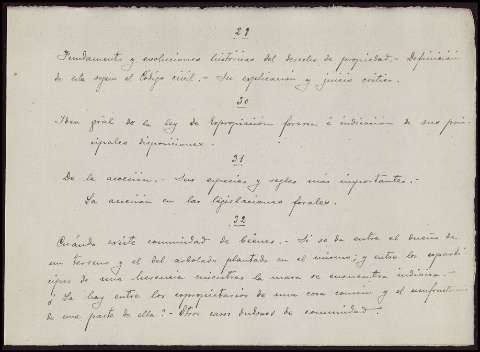 29
Fundamento y evoluciones históricas del derecho de propiedad.- Definición
de esta segun el Código civil.- Su explicación y juicio crítico.
30
Idea gral de la ley de Expropiación forzosa é indicación de sus prin-
cipales disposiciones.
31
De la accesión.- Sus especies y reglas más importantes.-
La accesión en las legislaciones forales.
32
Cuándo existe comunidad de bienes.- Si se da entre el dueño de
un terreno y el del arbolado plantado en el mismo; y entre los copartí-
cipes de una herencia mientras la masa se encuentra indivisa.-
¿La hay entre los copropietarios de una cosa común y el usufructuario
de una parte de ella?- Otros casos dudosos de comunidad.